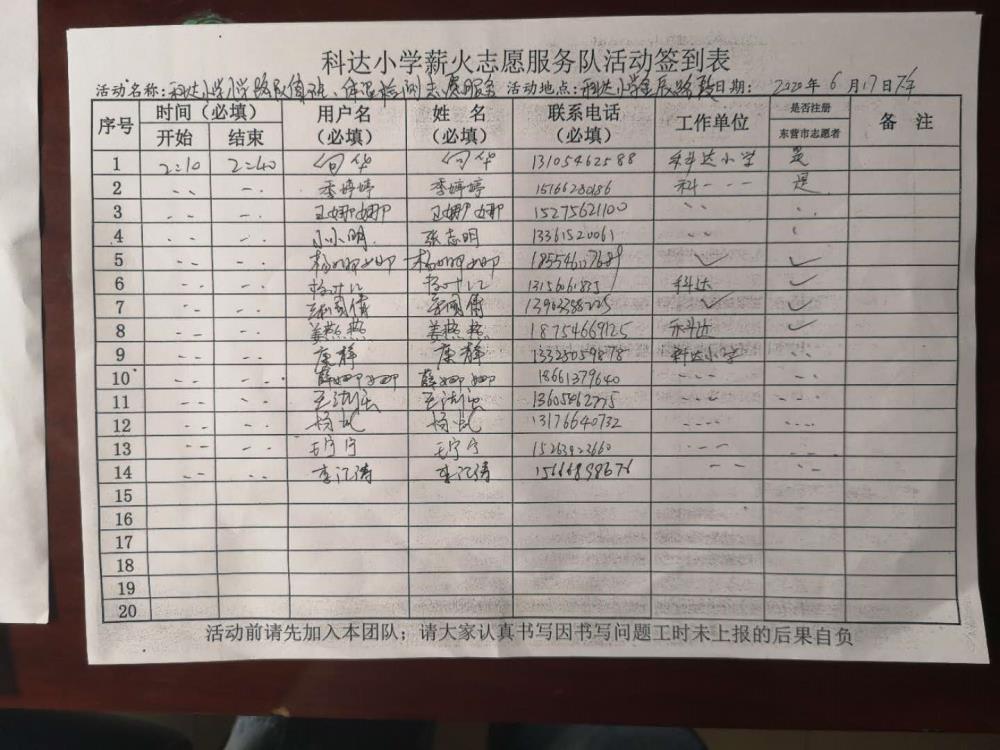 科达小学薪火志愿服务队活动签到表
活动名称：科达小学小学路队值班、体温检测志愿服务 活动地点：科达小学 日期： 2020年6月17日下午
序号 时间（必填） 用户名（必填） 姓 名（必填） 联系电话（必填） 工作单位 是否注册东营市志愿者 备 注
开始 结束
1 2:10 2:40 华 华 13105462588 科达小学 是
2 季婷婷 季婷婷 科 是
3 王娜娜 王娜娜 15275621100
4 小小明 张志明 13361520061
5 杨娜娜 杨娜娜 ✓ ✓
6 科达 ✓
7 ✓ ✓
8 姜燕燕 姜燕燕 18754669125 科达 ✓
9 康静 康静 13325059878 科达小学
10 薛娜娜 薛娜娜 18661379640
11 13605462775
12 杨 杨 13176640732
13 王宁宁 王宁宁 15263923660
14 李江涛 李江涛 15666898676
15
16
17
18
19
20
活动前请先加入本团队；请大家认真书写因书写问题工时未上报的后果自负